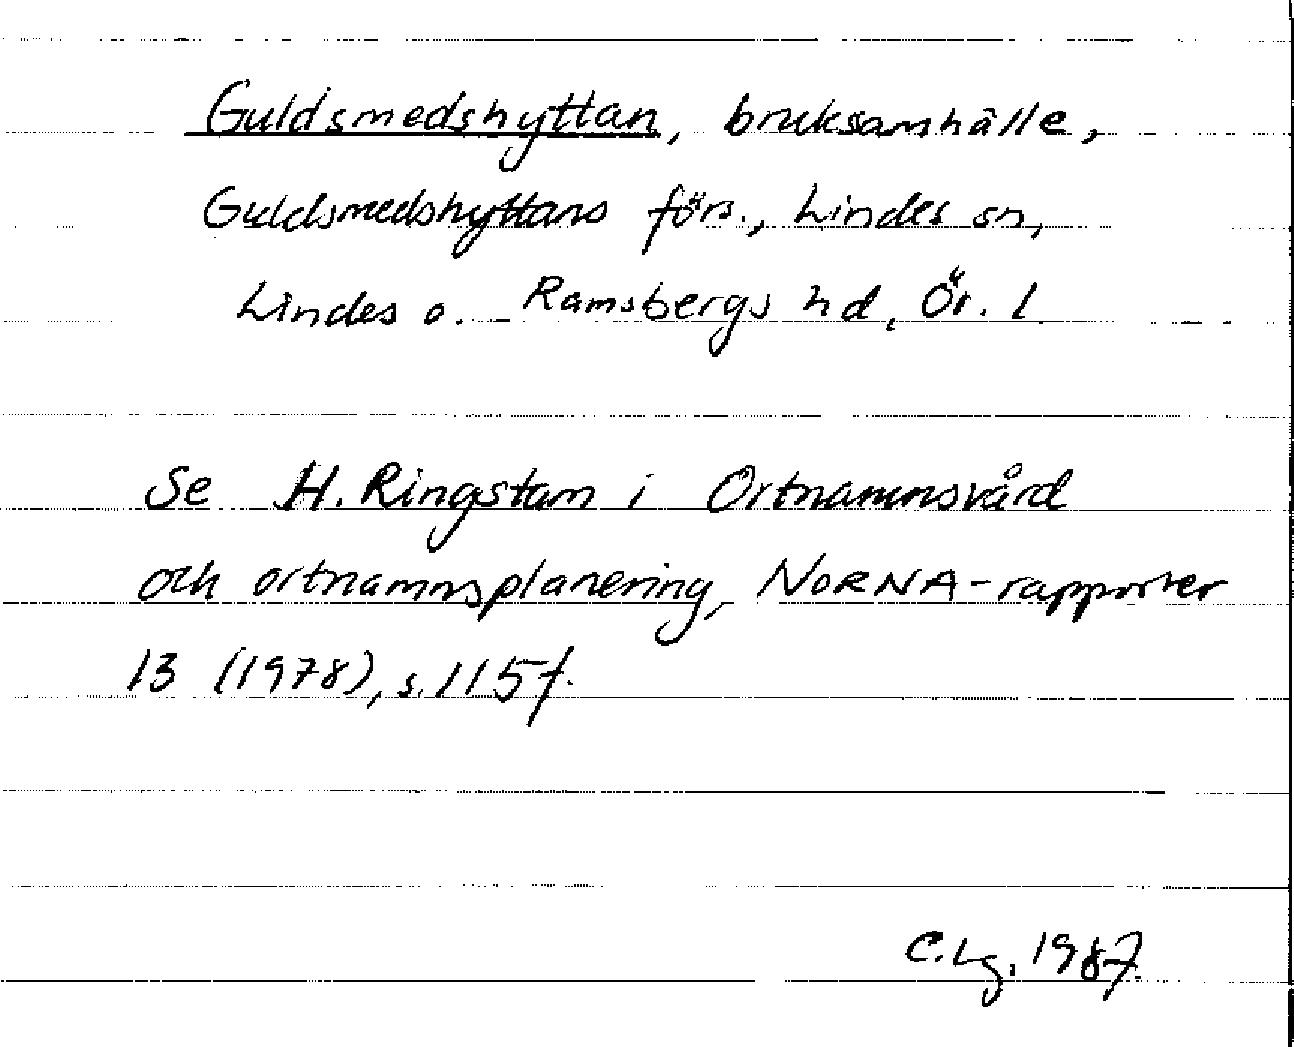 Guldsmedshyttan, bruksamhälle,
Guldsmedshyttans förs., Lindes sn,
Lindes o. Ramsbergs hd, Ör. l
Se H. Ringstam i Ortnamnsvård
och ortnamnsplanering, NORNA-rapporter
13 (1978), s. 115 f.
C.Lg. 1987.